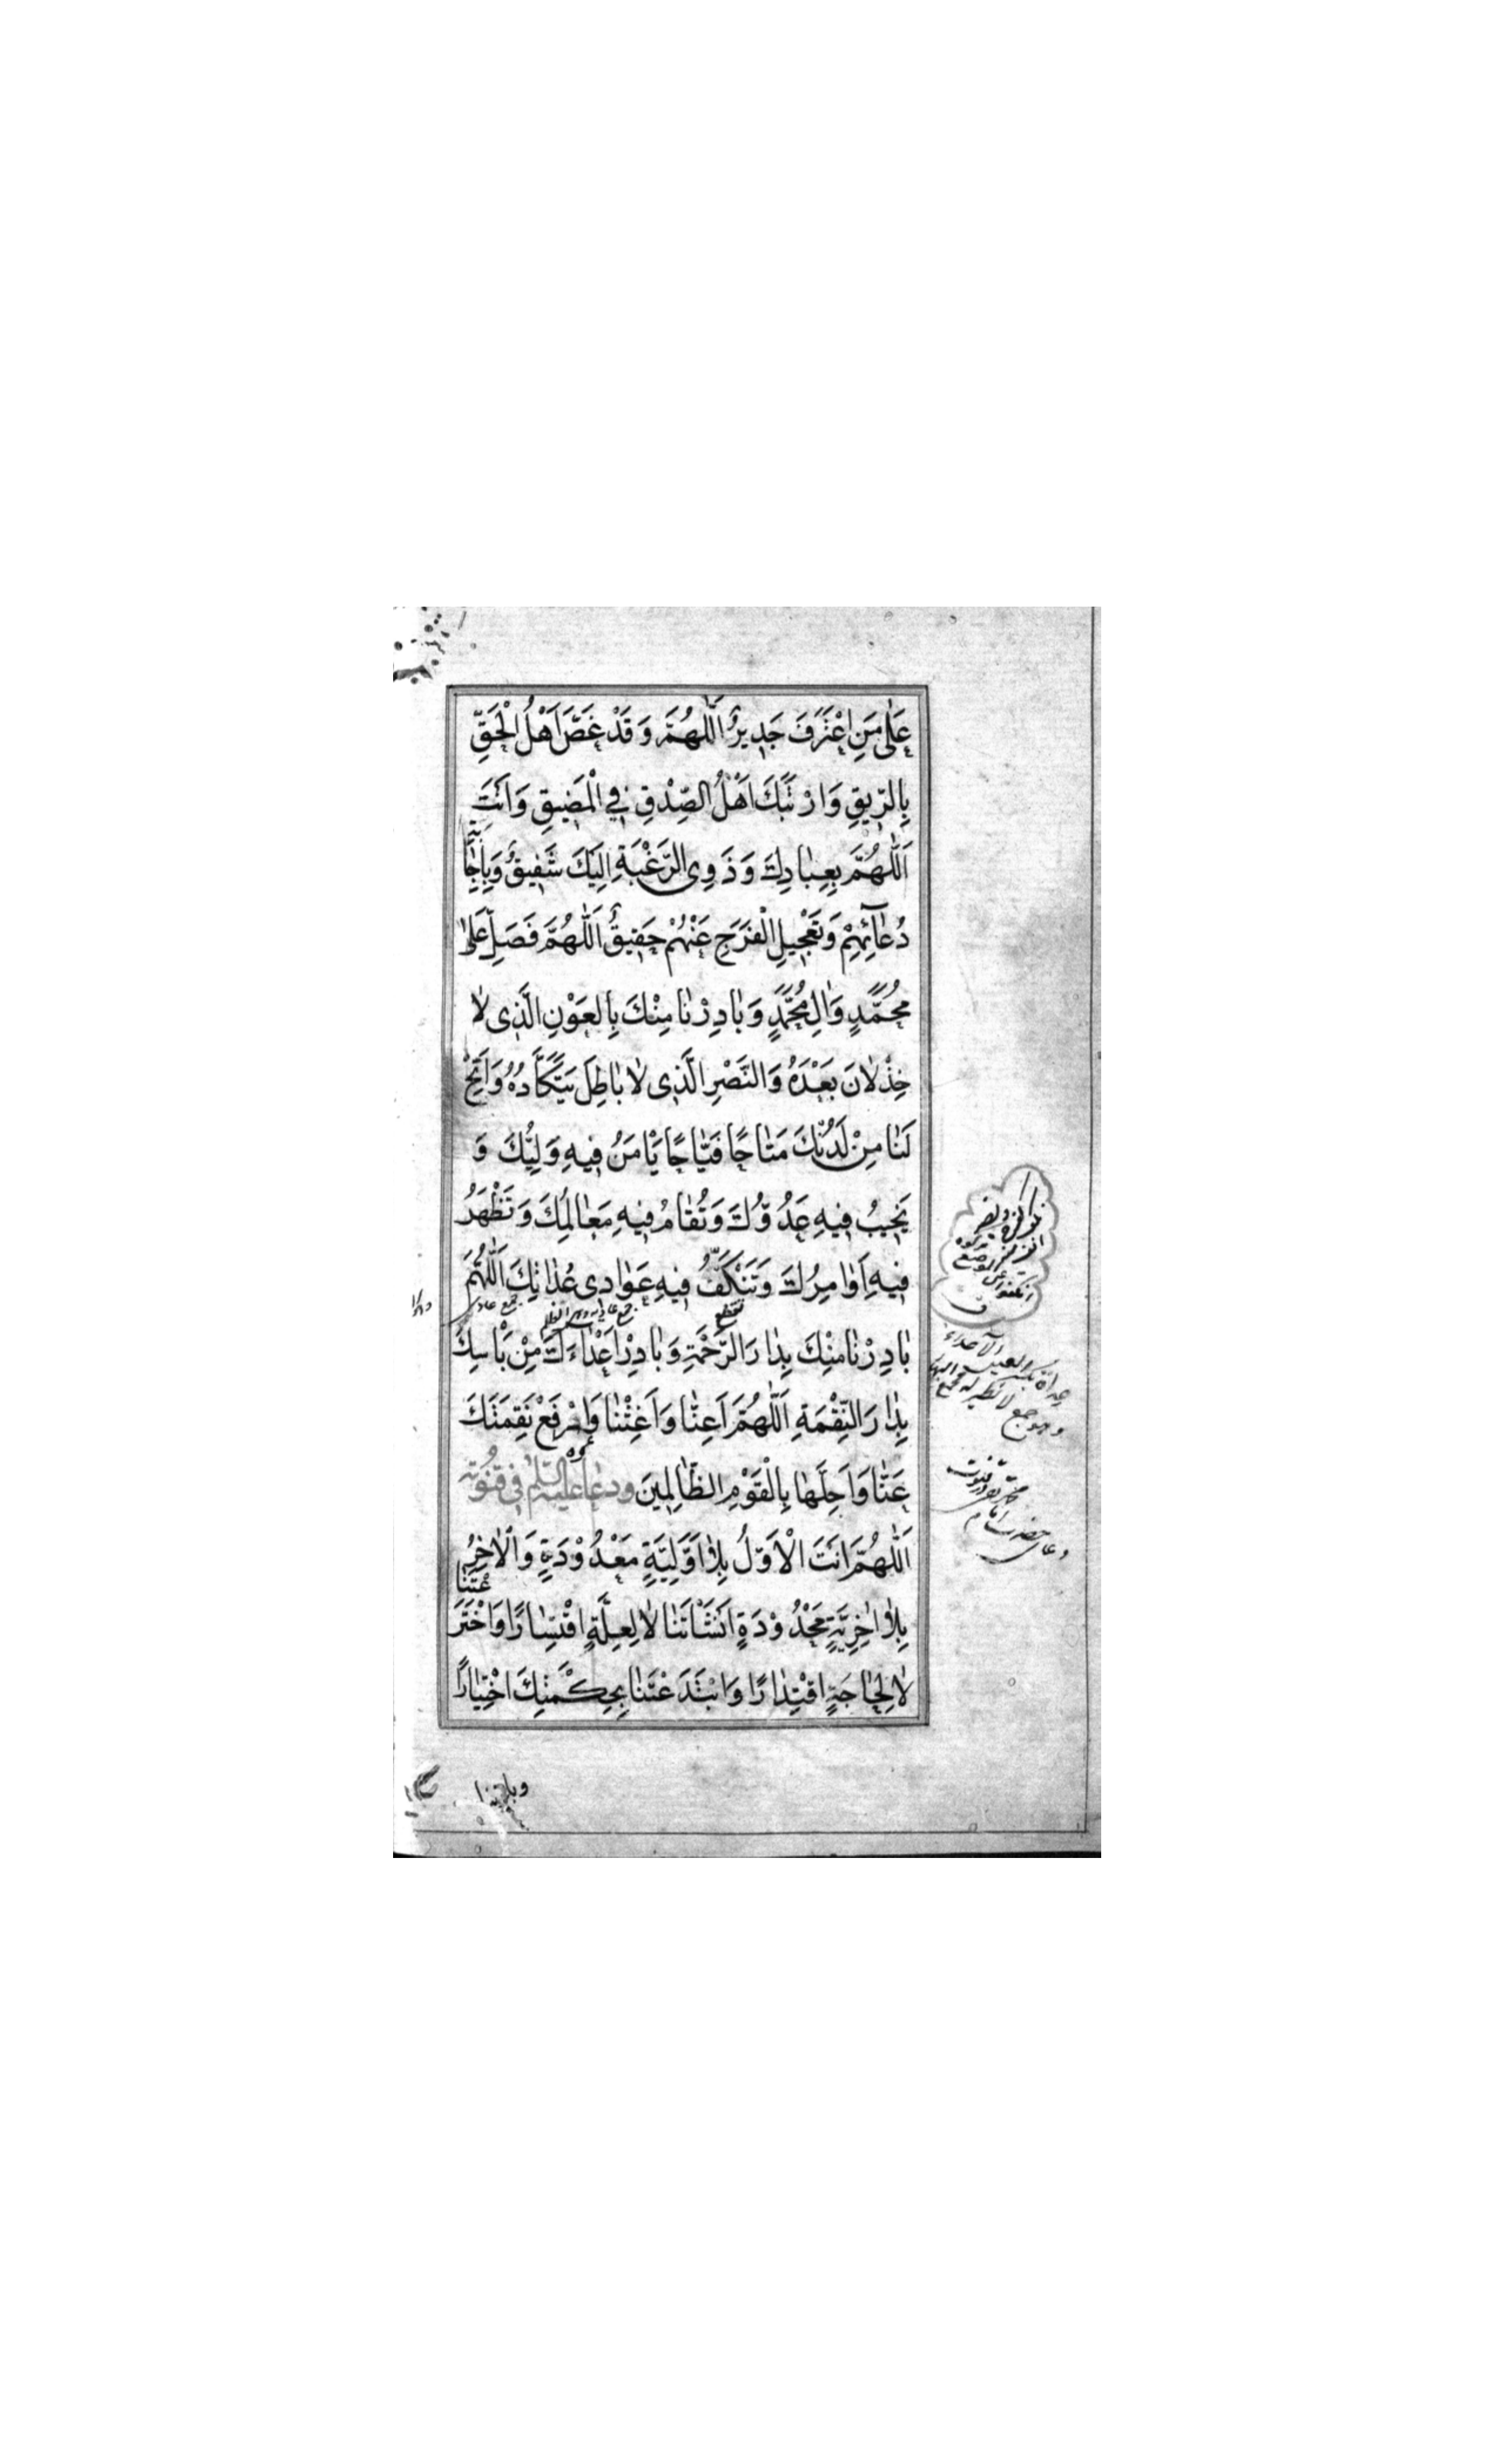 عَلٰى مَنِ اعْتَرَفَ جَدِيرٌ اَللّٰهُمَّ وَقَدْ غَصَّ اَهْلُ الْحَقِّ
بِالرِّيقِ وَارْتَبَكَ اَهْلُ الصِّدْقِ فِي الْمَضِيقِ وَاَنْتَ
اَللّٰهُمَّ بِعِبٰادِكَ وَذَوِى الرَّغْبَةِ اِلَيْكَ شَفِيقٌ وَبِاِجٰابَةِ
دُعٰائِهِمْ وَتَعْجِيلِ الْفَرَجِ عَنْهُمْ حَقِيقٌ اَللّٰهُمَّ فَصَلِّ عَلٰى
مُحَمَّدٍ وَاٰلِ مُحَمَّدٍ وَبٰادِرْنٰا مِنْكَ بِالعَوْنِ الَّذِى لٰا
خِذْلٰانَ بَعْدَهُ وَالنَّصْرِ الَّذِى لٰا بٰاطِلَ يَتَكَّأَدُهُ وَاَتِحْ
لَنٰا مِنْ لَدُنْكَ مَتٰاحًا فَيّٰاحًا يَاْمَنُ فِيهِ وَلِيُّكَ وَ
يَخِيبُ فِيهِ عَدُوُّكَ وَتُقٰامُ فِيهِ مَعٰالِمُكَ وَتَظْهَرُ
فِيهِ اَوٰامِرُكَ وَتَنْكَفُّ فِيهِ عَوٰادِى عُدٰاتِكَ اَللّٰهُمَّ
بٰادِرْنٰا مِنْكَ بِدٰارَ الرَّحْمَةِ وَبٰادِرْ اَعْدٰاءَكَ مِنْ بَاْسِكَ
بِدٰارَ النِّقْمَةِ اَللّٰهُمَّ اَعِنّٰا وَاَغِثْنٰا وَارْفَعْ نَقِمَتَكَ
عَنّٰا وَاَحِلَّهٰا بِالْقَوْمِ الظّٰالِمِينَ وَدعٰا عليه السّلم فى قنوته
اَللّٰهُمَّ اَنْتَ الْاَوَّلُ بِلٰا اَوَّلِيَّةٍ مَعْدُوْدَةٍ وَالْاٰخِرُ
بِلٰا اٰخِرِيَّةٍ مَحْدُوْدَةٍ اَنْشَاْتَنٰا لٰا لِعِلَّةٍ اقْتِسٰارًا وَاخْتَرَعْتَنٰا
لٰا لِحٰاجَةٍ اقْتِدٰارًا وَابْتَدَعْتَنٰا بِحِكْمَتِكَ اخْتِيٰارًا